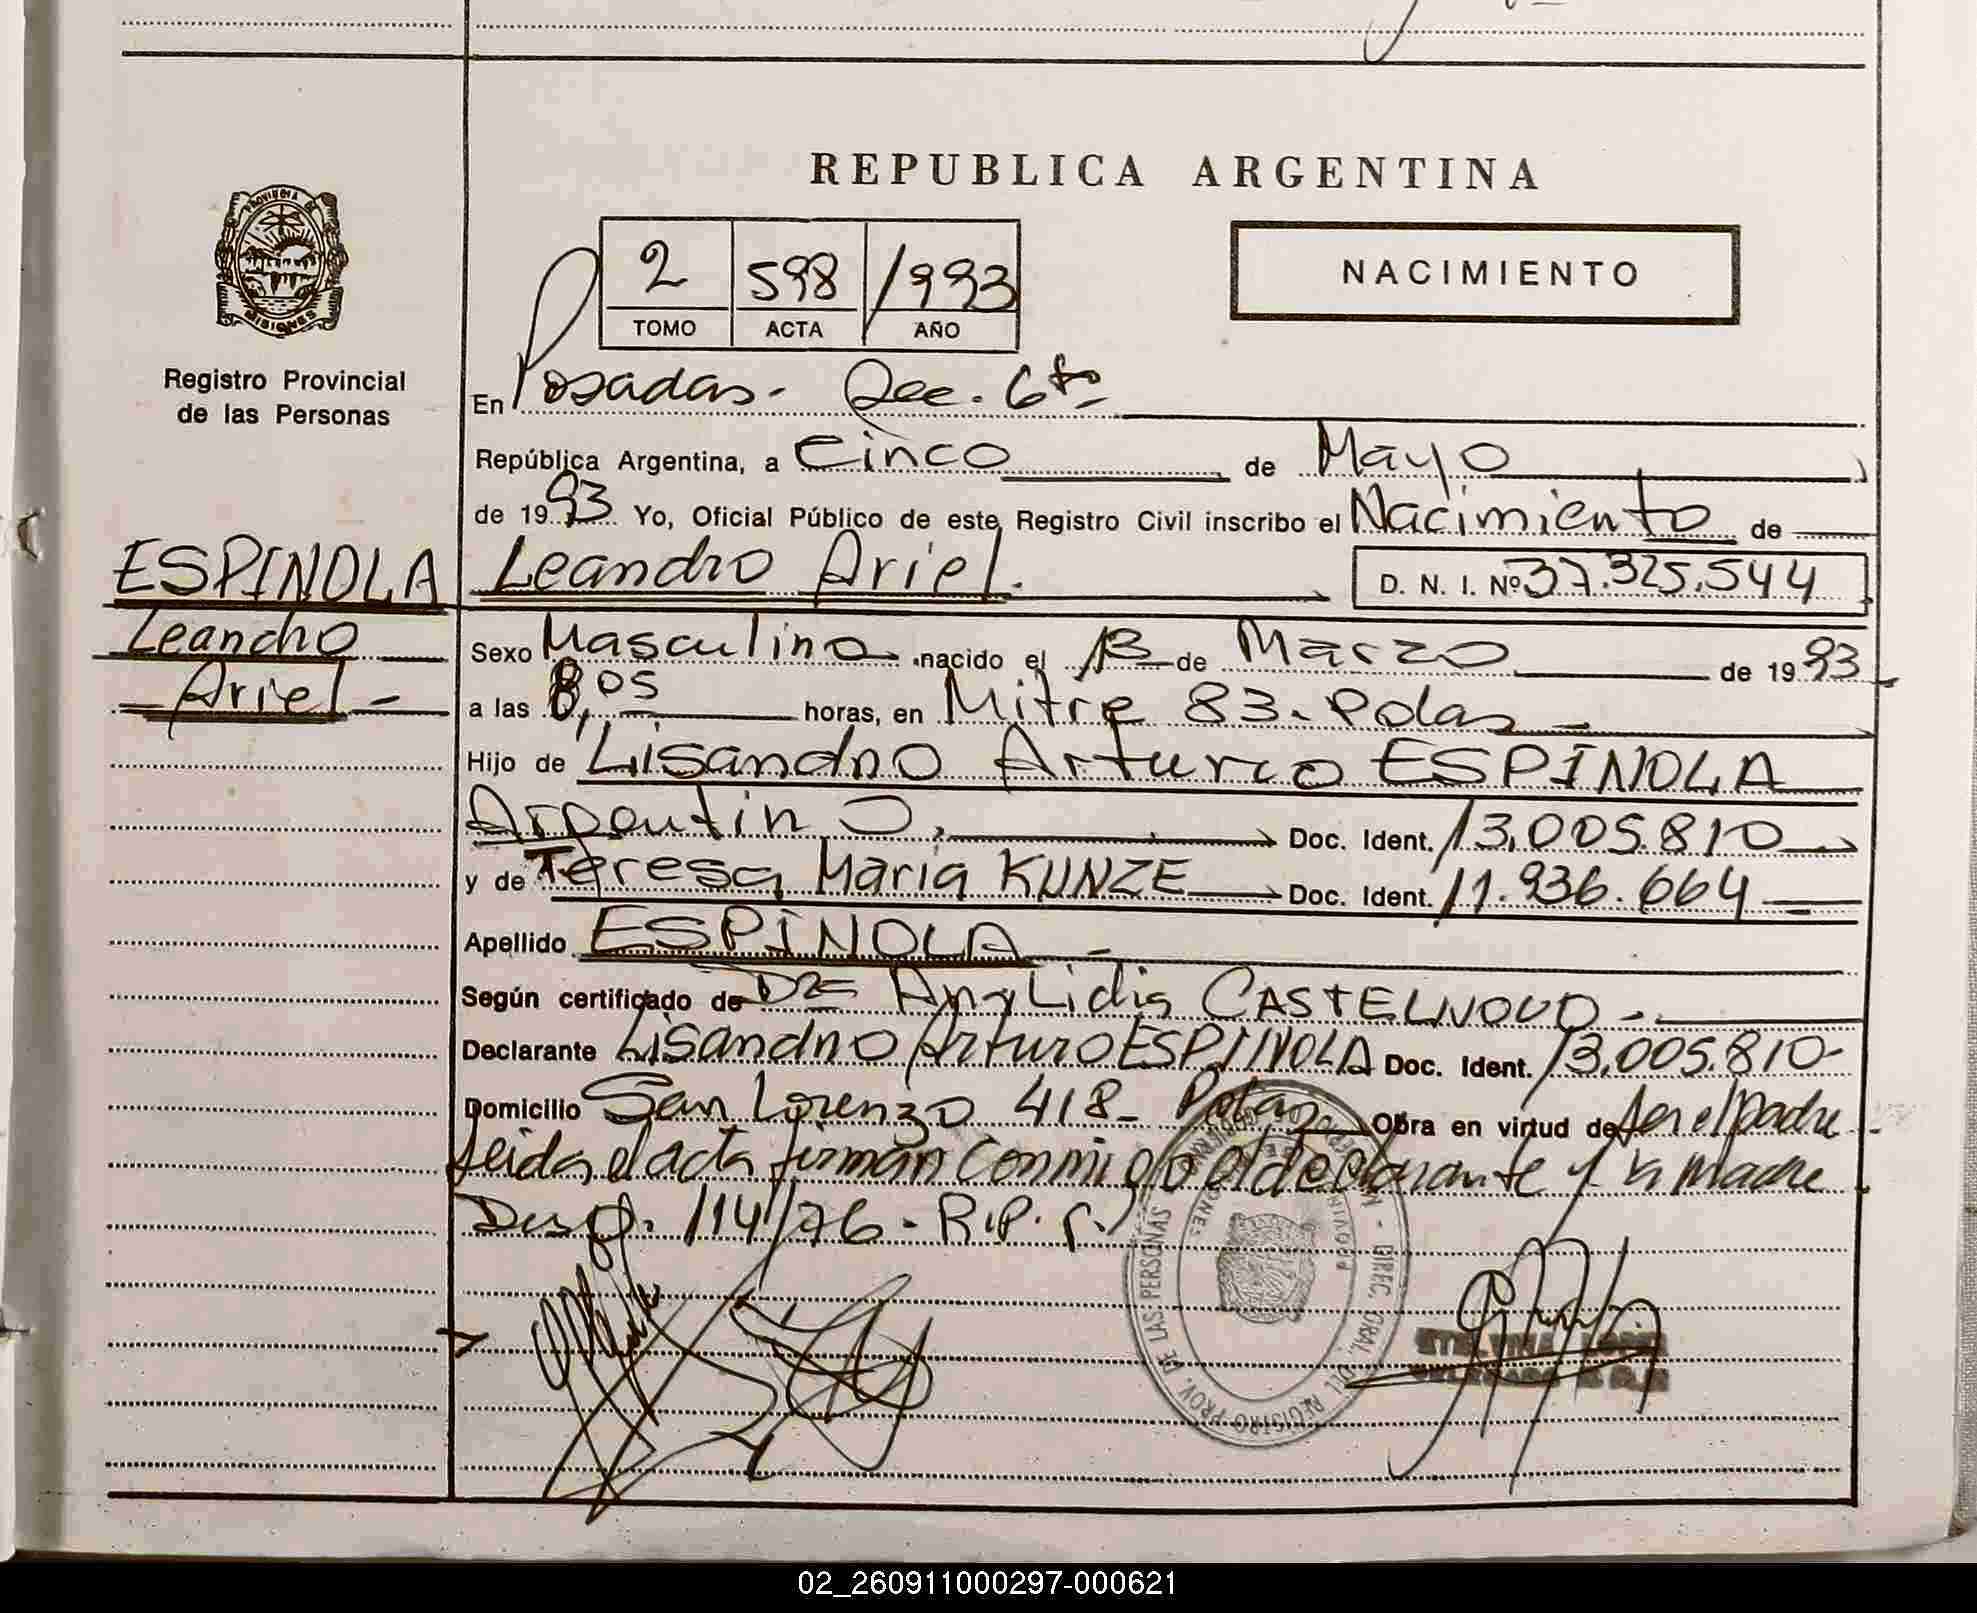 REPUBLICA ARGENTINA
PROVINCIA DE
MISIONES
NACIMIENTO
2 598 1993
TOMO ACTA AÑO
Registro Provincial
de las Personas
En Posadas - Sec. 6ta
República Argentina, a Cinco de Mayo
de 1993 Yo, Oficial Público de este Registro Civil inscribo el Nacimiento de
ESPINOLA
Leandro
Ariel
Leandro Ariel. D. N. I. Nº 37.325.544
Sexo Masculino nacido el 13 de Marzo de 1993
a las 8,05 horas, en Mitre 83 - Pdas
Hijo de Lisandro Arturo ESPINOLA
Argentino, Doc. Ident. 13.005.810
y de Teresa Maria KUNZE Doc. Ident. 11.936.664
Apellido ESPINOLA
Según certificado de Dra Ana Lidia CASTELNOVO
Declarante Lisandro Arturo ESPINOLA Doc. Ident. 13.005.810
Domicilio San Lorenzo 418 - Pdas Obra en virtud de ser el padre
Leida el acta firman conmigo el declarante y la madre
Disp. 114/76 - R.P.P.
DIREC. GRAL. DEL REGISTRO PROV. DE LAS PERSONAS
02_260911000297-000621